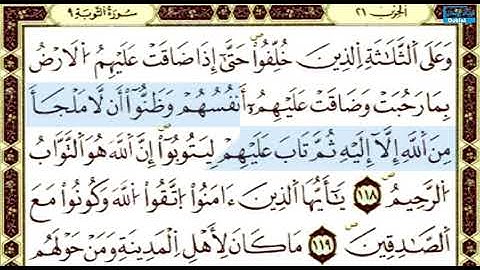 الحزب ٢١ سورة التوبة ٩
وَعَلَى ٱلثَّلَٰثَةِ ٱلذِينَ خُلِّفُواْ حَتَّىٰٓ إِذَا ضَاقَتْ عَلَيْهِمُ ٱلَارْضُ
بِمَا رَحُبَتْ وَضَاقَتْ عَلَيْهِمُۥٓ أَنفُسُهُمْ وَظَنُّوٓاْ أَن لَّا مَلْجَأَ
مِنَ ٱللَّهِ إِلَّآ إِلَيْهِ ثُمَّ تَابَ عَلَيْهِمْ لِيَتُوبُوٓاْ إِنَّ ٱللَّهَ هُوَ ٱلتَّوَّابُ
ٱلرَّحِيمُ ١١٨ يَٰٓأَيُّهَا ٱلذِينَ ءَامَنُواْ ٱتَّقُواْ ٱللَّهَ وَكُونُواْ مَعَ
ٱلصَّٰدِقِينَ ١١٩ مَا كَانَ لِأَهْلِ ٱلْمَدِينَةِ وَمَنْ حَوْلَهُم